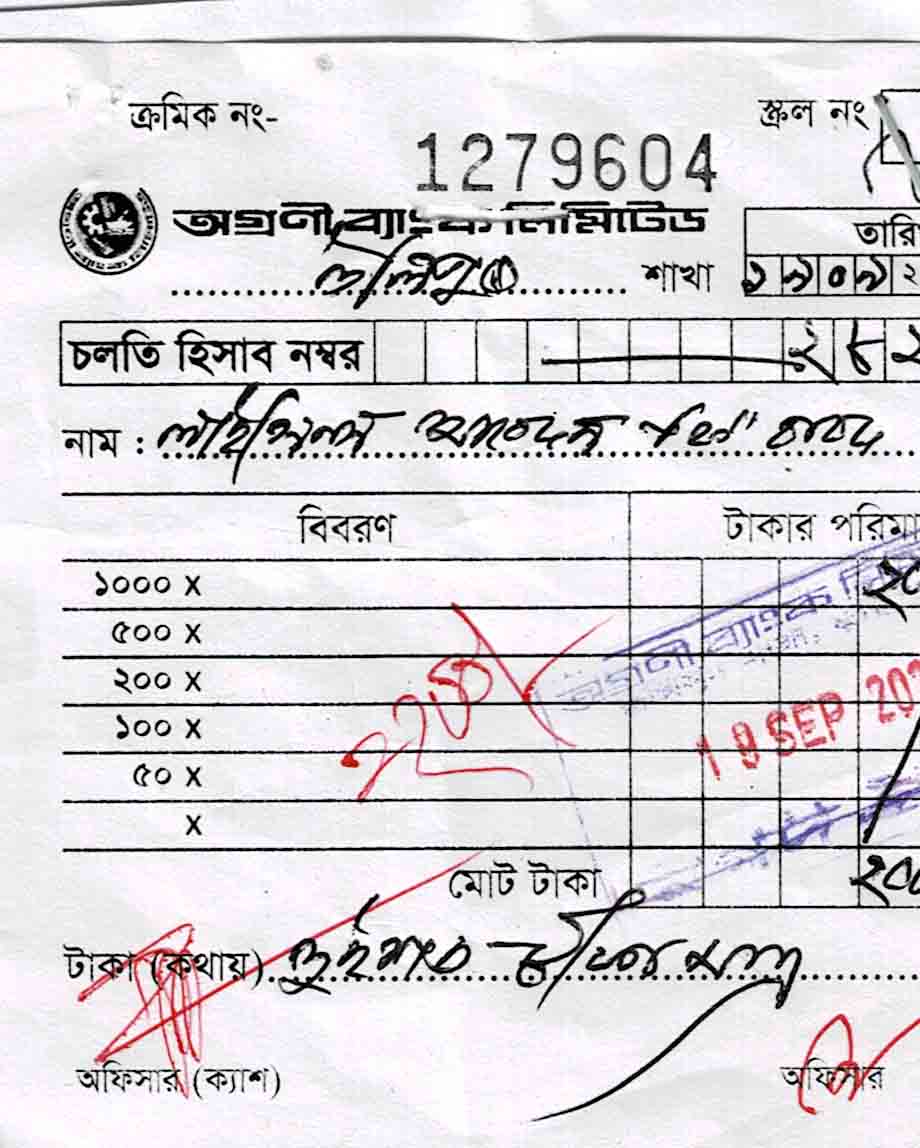 ক্রমিক নং-
স্ক্রল নং
1279604
অগ্রণী ব্যাংক লিমিটেড
শাখা
তারি
১৯০৯২
চলতি হিসাব নম্বর
২৮২
নাম :
বিবরণ
টাকার পরিমা
১০০০ x
২০
৫০০ x
২০০ x
অগ্রণী ব্যাংক লি
১০০ x
SEP 202
৫০ x
x
মোট টাকা
২০০
টাকা (কথায়) দুইশত টাকা মাত্র
অফিসার (ক্যাশ)
অফিসার